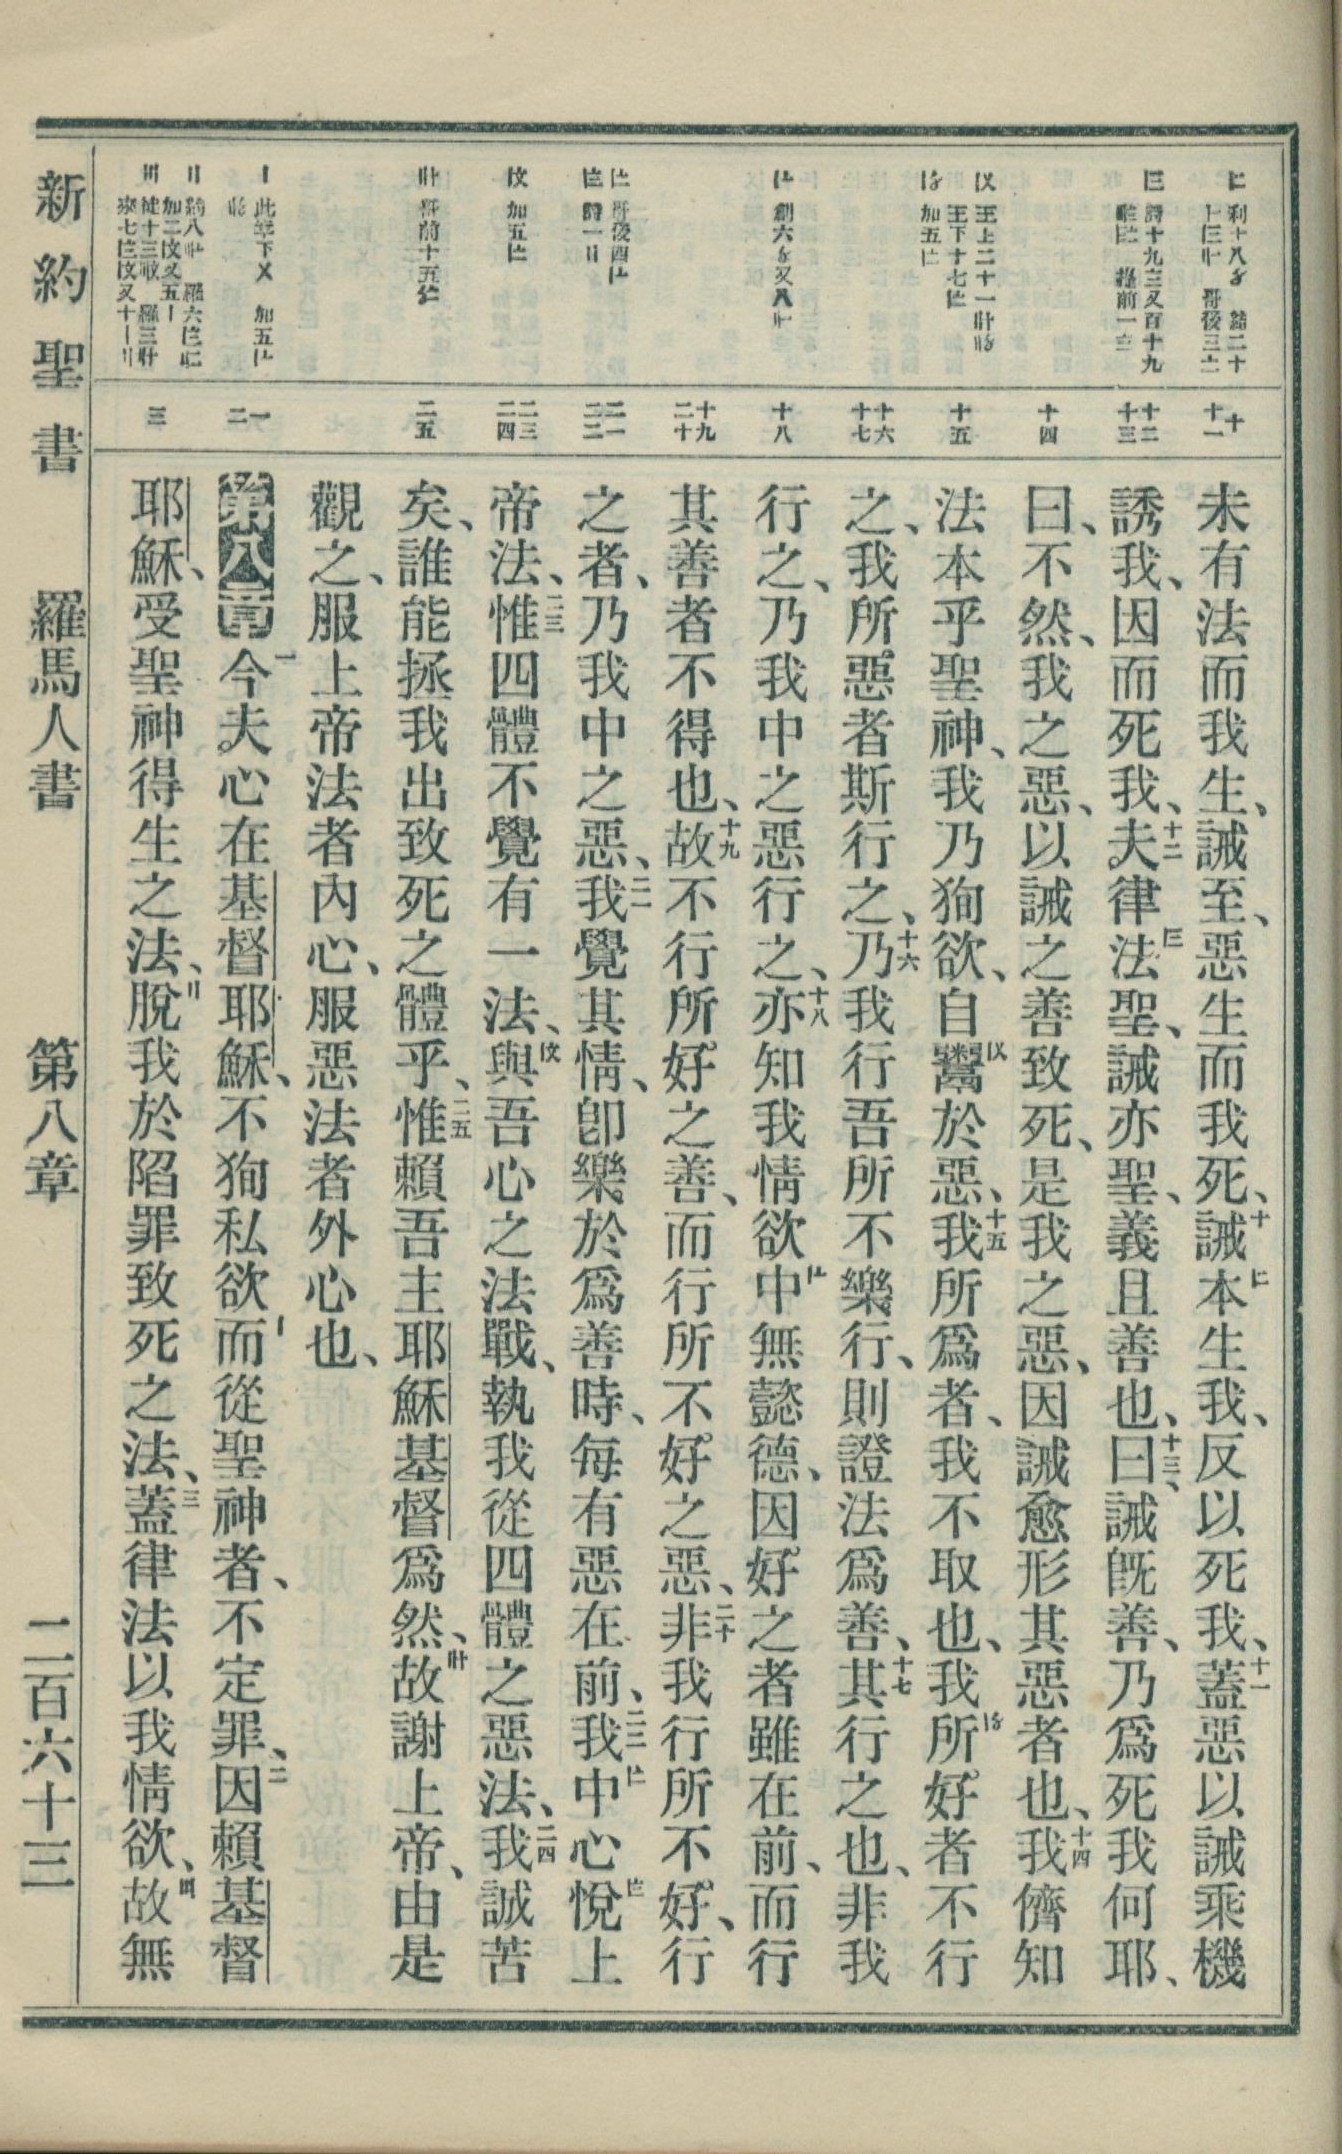 未有法而我生、誡至、惡生而我死、十誡本生我、反以死我、十一蓋惡以誡乘機
誘我、因而死我、十二夫律法聖、誡亦聖、義且善也、十三曰、誡旣善、乃爲死我何耶、
曰、不然、我之惡、以誡之善致死、是我之惡、因誡愈形其惡者也、十四我儕知
法本乎聖神、我乃狥欲、自鬻於惡、十五我所爲者、我不取也、我所好者不行
之、我所惡者斯行之、十六乃我行吾所不樂行、則證法爲善、十七其行之也、非我
行之、乃我中之惡行之、十八亦知我情欲中無懿德、因好之者雖在前、而行
其善者不得也、十九故不行所好之善、而行所不好之惡、二十非我行所不好、行
之者、乃我中之惡、二一我覺其情、卽樂於爲善時、每有惡在前、二二我中心悅上
帝法、二三惟四體不覺有一法、與吾心之法戰、執我從四體之惡法、二四我誠苦
矣、誰能拯我出致死之體乎、二五惟賴吾主耶穌基督爲然、故謝上帝、由是
觀之、服上帝法者內心、服惡法者外心也、
第八章 一今夫心在基督耶穌、不狥私欲而從聖神者、不定罪、二因賴基督
耶穌、受聖神得生之法、脫我於陷罪致死之法、三蓋律法以我情欲、故無
十
十一
十二
十三
十四
十五
十六
十七
十八
十九
二十
二一
二二
二三
二四
二五
一
二
三
新約聖書 羅馬人書 第八章 二百六十三